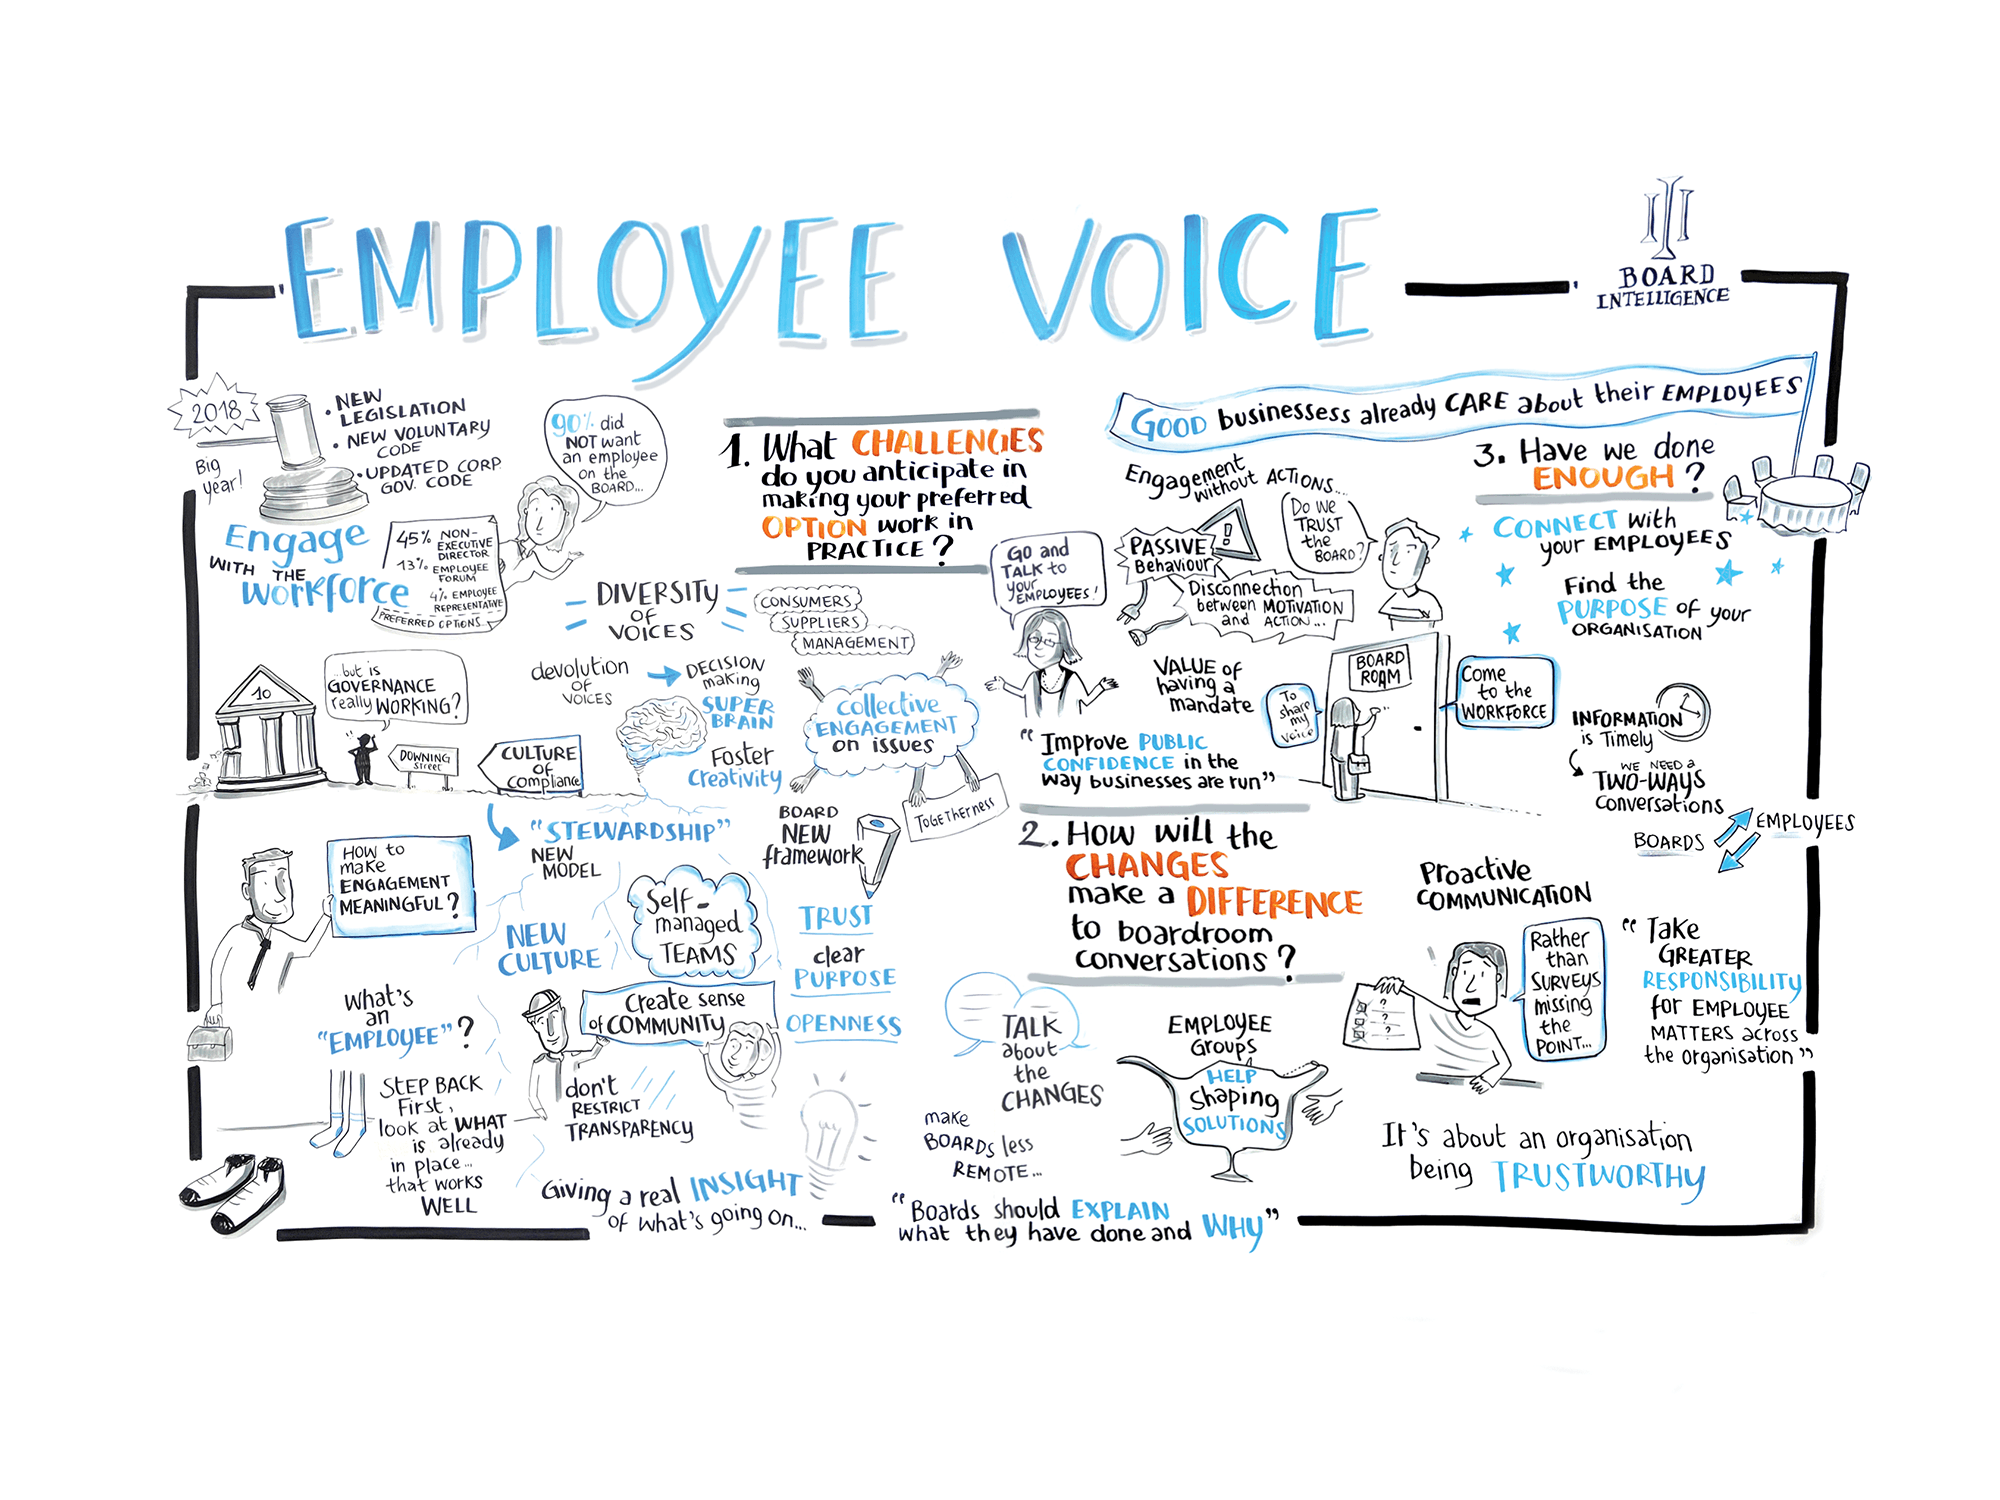 EMPLOYEE VOICE
BOARD
INTELLIGENCE
2018
Big
year!
• NEW
LEGISLATION
• NEW VOLUNTARY
CODE
• UPDATED CORP.
GOV. CODE
Engage
WITH THE
Workforce
45% NON-
EXECUTIVE
DIRECTOR
13% EMPLOYEE
FORUM
4% EMPLOYEE
REPRESENTATIVE
PREFERRED OPTIONS...
90% did
NOT want
an employee
on the
BOARD...
1. What CHALLENGES
do you anticipate in
making your preferred
OPTION work in
PRACTICE?
DIVERSITY
OF
VOICES
CONSUMERS
SUPPLIERS
MANAGEMENT
devolution
OF
VOICES
DECISION
making
SUPER
BRAIN
Foster
Creativity
collective
ENGAGEMENT
on issues
TOGETHERNESS
10
...but is
GOVERNANCE
really WORKING?
DOWNING
Street
CULTURE
OF
Compliance
"STEWARDSHIP"
NEW
MODEL
BOARD
NEW
framework
HOW to
make
ENGAGEMENT
MEANINGFUL?
NEW
CULTURE
Self-
managed
TEAMS
TRUST
clear
PURPOSE
OPENNESS
What's
an
"EMPLOYEE"?
Create sense
of COMMUNITY
STEP BACK
First,
look at WHAT
is already
in place...
that works
WELL
don't
RESTRICT
TRANSPARENCY
Giving a real INSIGHT
of what's going on...
GOOD businessess already CARE about their EMPLOYEES
Engagement
without ACTIONS...
PASSIVE
Behaviour
!
Disconnection
between MOTIVATION
and ACTION...
Do we
TRUST
the
BOARD?
GO and
TALK to
your
EMPLOYEES!
VALUE of
having a
mandate
To
share
my
voice
BOARD
ROAM
Come
to the
WORKFORCE
"Improve PUBLIC
CONFIDENCE in the
way businesses are run"
2. HOW will the
CHANGES
make a DIFFERENCE
to boardroom
conversations?
TALK
about
the
CHANGES
make
BOARDS less
REMOTE...
EMPLOYEE
GROUPS
HELP
shaping
SOLUTIONS
"Boards should EXPLAIN
what they have done and WHY"
3. Have we done
ENOUGH?
CONNECT with
your EMPLOYEES
Find the
PURPOSE of your
ORGANISATION
INFORMATION
is Timely
WE NEED A
TWO-WAYS
conversations
BOARDS
EMPLOYEES
Proactive
COMMUNICATION
?
?
?
Rather
than
SURVEYS
missing
the
POINT...
"Take
GREATER
RESPONSIBILITY
for EMPLOYEE
MATTERS across
the organisation"
It's about an organisation
being TRUSTWORTHY